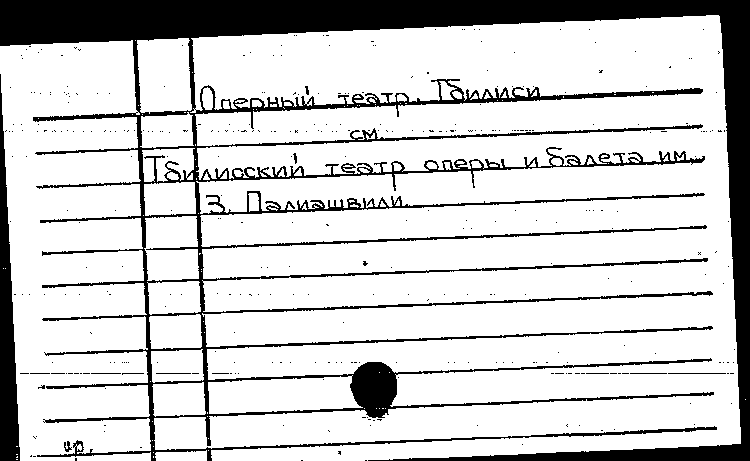 Оперный театр. Тбилиси
см.
Тбилисский театр оперы и балета им.
З. Палиашвили.